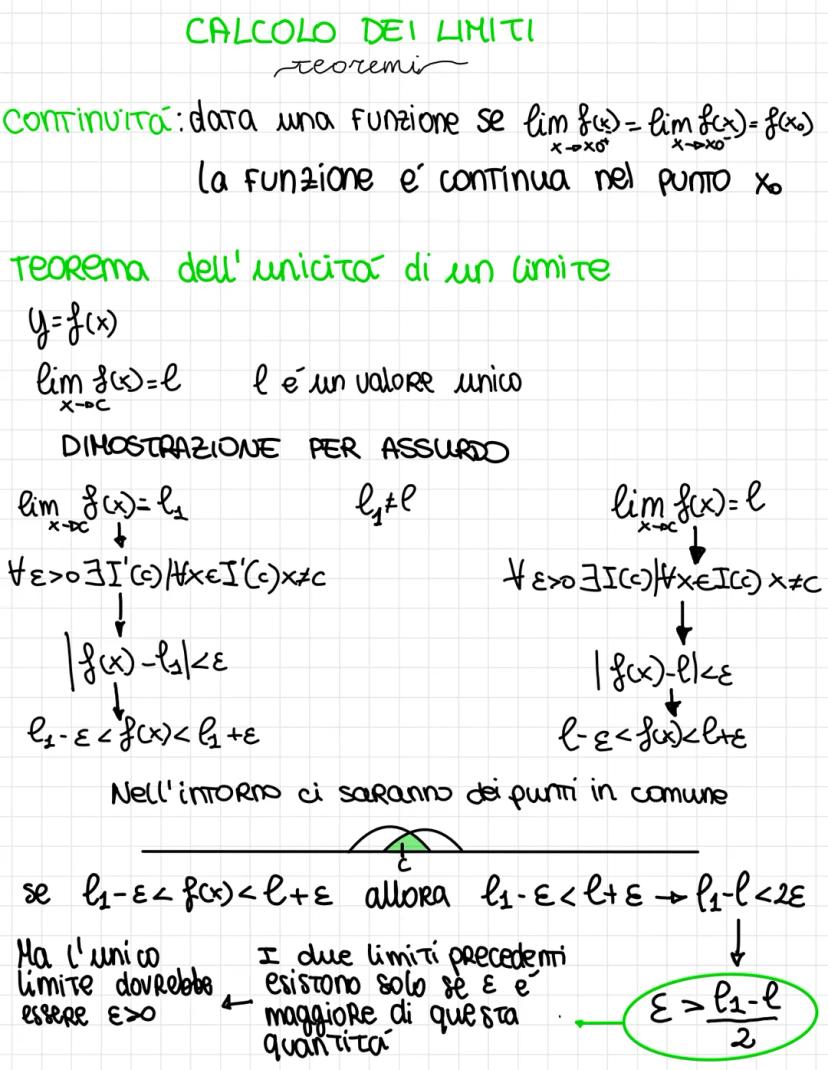 CALCOLO DEI LIMITI
teoremi
CONTINUITÁ: data una funzione se lim f(x) = lim f(x) = f(x₀)
x→x0⁺ x→x0⁻
la funzione é continua nel punto x₀
TEOREMA dell'unicitá di un limite
y=f(x)
lim f(x)=l l é un valore unico
x→c
DIMOSTRAZIONE PER ASSURDO
lim f(x)=l₁ l₁≠l lim f(x)=l
x→c x→c
∀ε>0∃I'(c)|∀x∈I'(c)x≠c ∀ε>0∃I(c)|∀x∈I(c) x≠c
|f(x)-l₁|<ε |f(x)-l|<ε
l₁-ε<f(x)<l₁+ε l-ε<f(x)<l+ε
Nell'intorno ci saranno dei punti in comune
c
se l₁-ε< f(x)<l+ε allora l₁-ε<l+ε → l₁-l<2ε
Ma l'unico
limite dovrebbe
essere ε>0
←
I due limiti precedenti
esistono solo se ε é
maggiore di questa
quantitá
ε > l₁-l
2